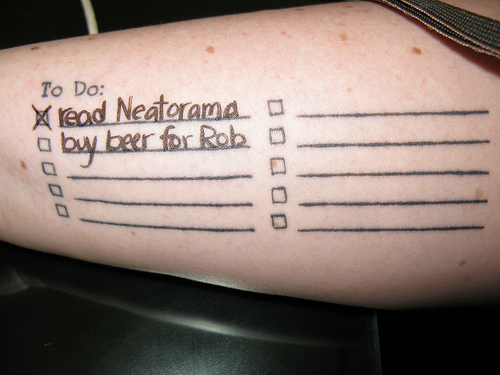 To Do:
read Neatorama
buy beer for Rob